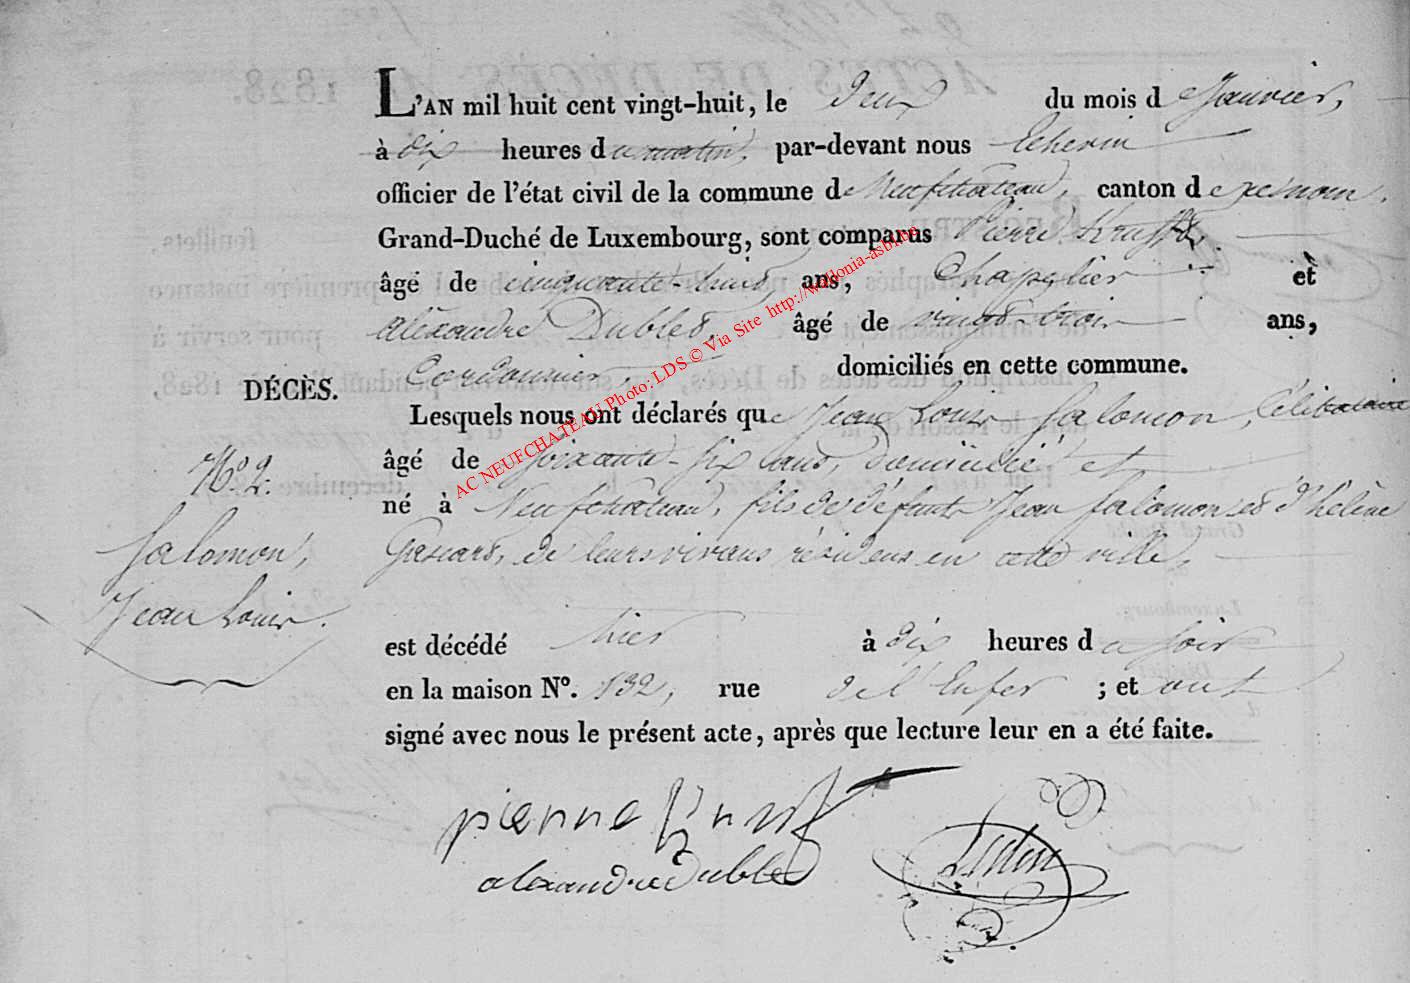 L'AN mil huit cent vingt-huit, le deux du mois de Janvier,
à dix heures du matin, par-devant nous
officier de l'état civil de la commune de Neufchateau, canton de ce nom,
Grand-Duché de Luxembourg, sont comparus Pierre
âgé de cinquante-huit ans, Chapelier et
Alexandre Dubled, âgé de vingt trois ans,
Cordonnier, domiciliés en cette commune.
DÉCÈS.
Lesquels nous ont déclarés que Jean Louis Salomon, Célibataire
âgé de soixante-six ans, domicilié et
né à Neufchateau, fils de défunts Jean Salomon et d'hélène
de leurs vivans résidens en cette ville,
No. 2.
Salomon,
Jean Louis.
est décédé hier à dix heures du soir
en la maison No. 132, rue de l'Enfer ; et ont
signé avec nous le présent acte, après que lecture leur en a été faite.
pierre
alexandre Dubled
AC NEUFCHATEAU Photo: LDS © Via Site http://wallonia-asbl.be